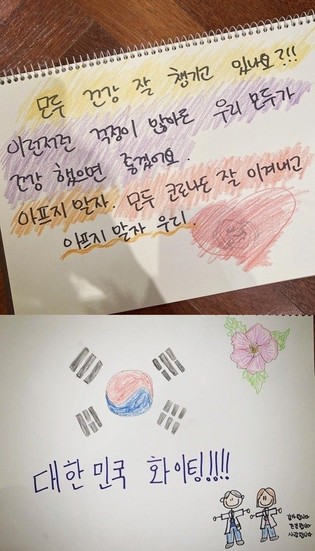 모두 건강 잘 챙기고 있나요?!!
이런저런 걱정이 많아도 우리 모두가
건강 했으면 좋겠어요.
아프지 말자. 모두 코로나도 잘 이겨내고
아프지 말자 우리.
대한민국 화이팅!!!!
감사합니다
존경합니다
사랑합니다